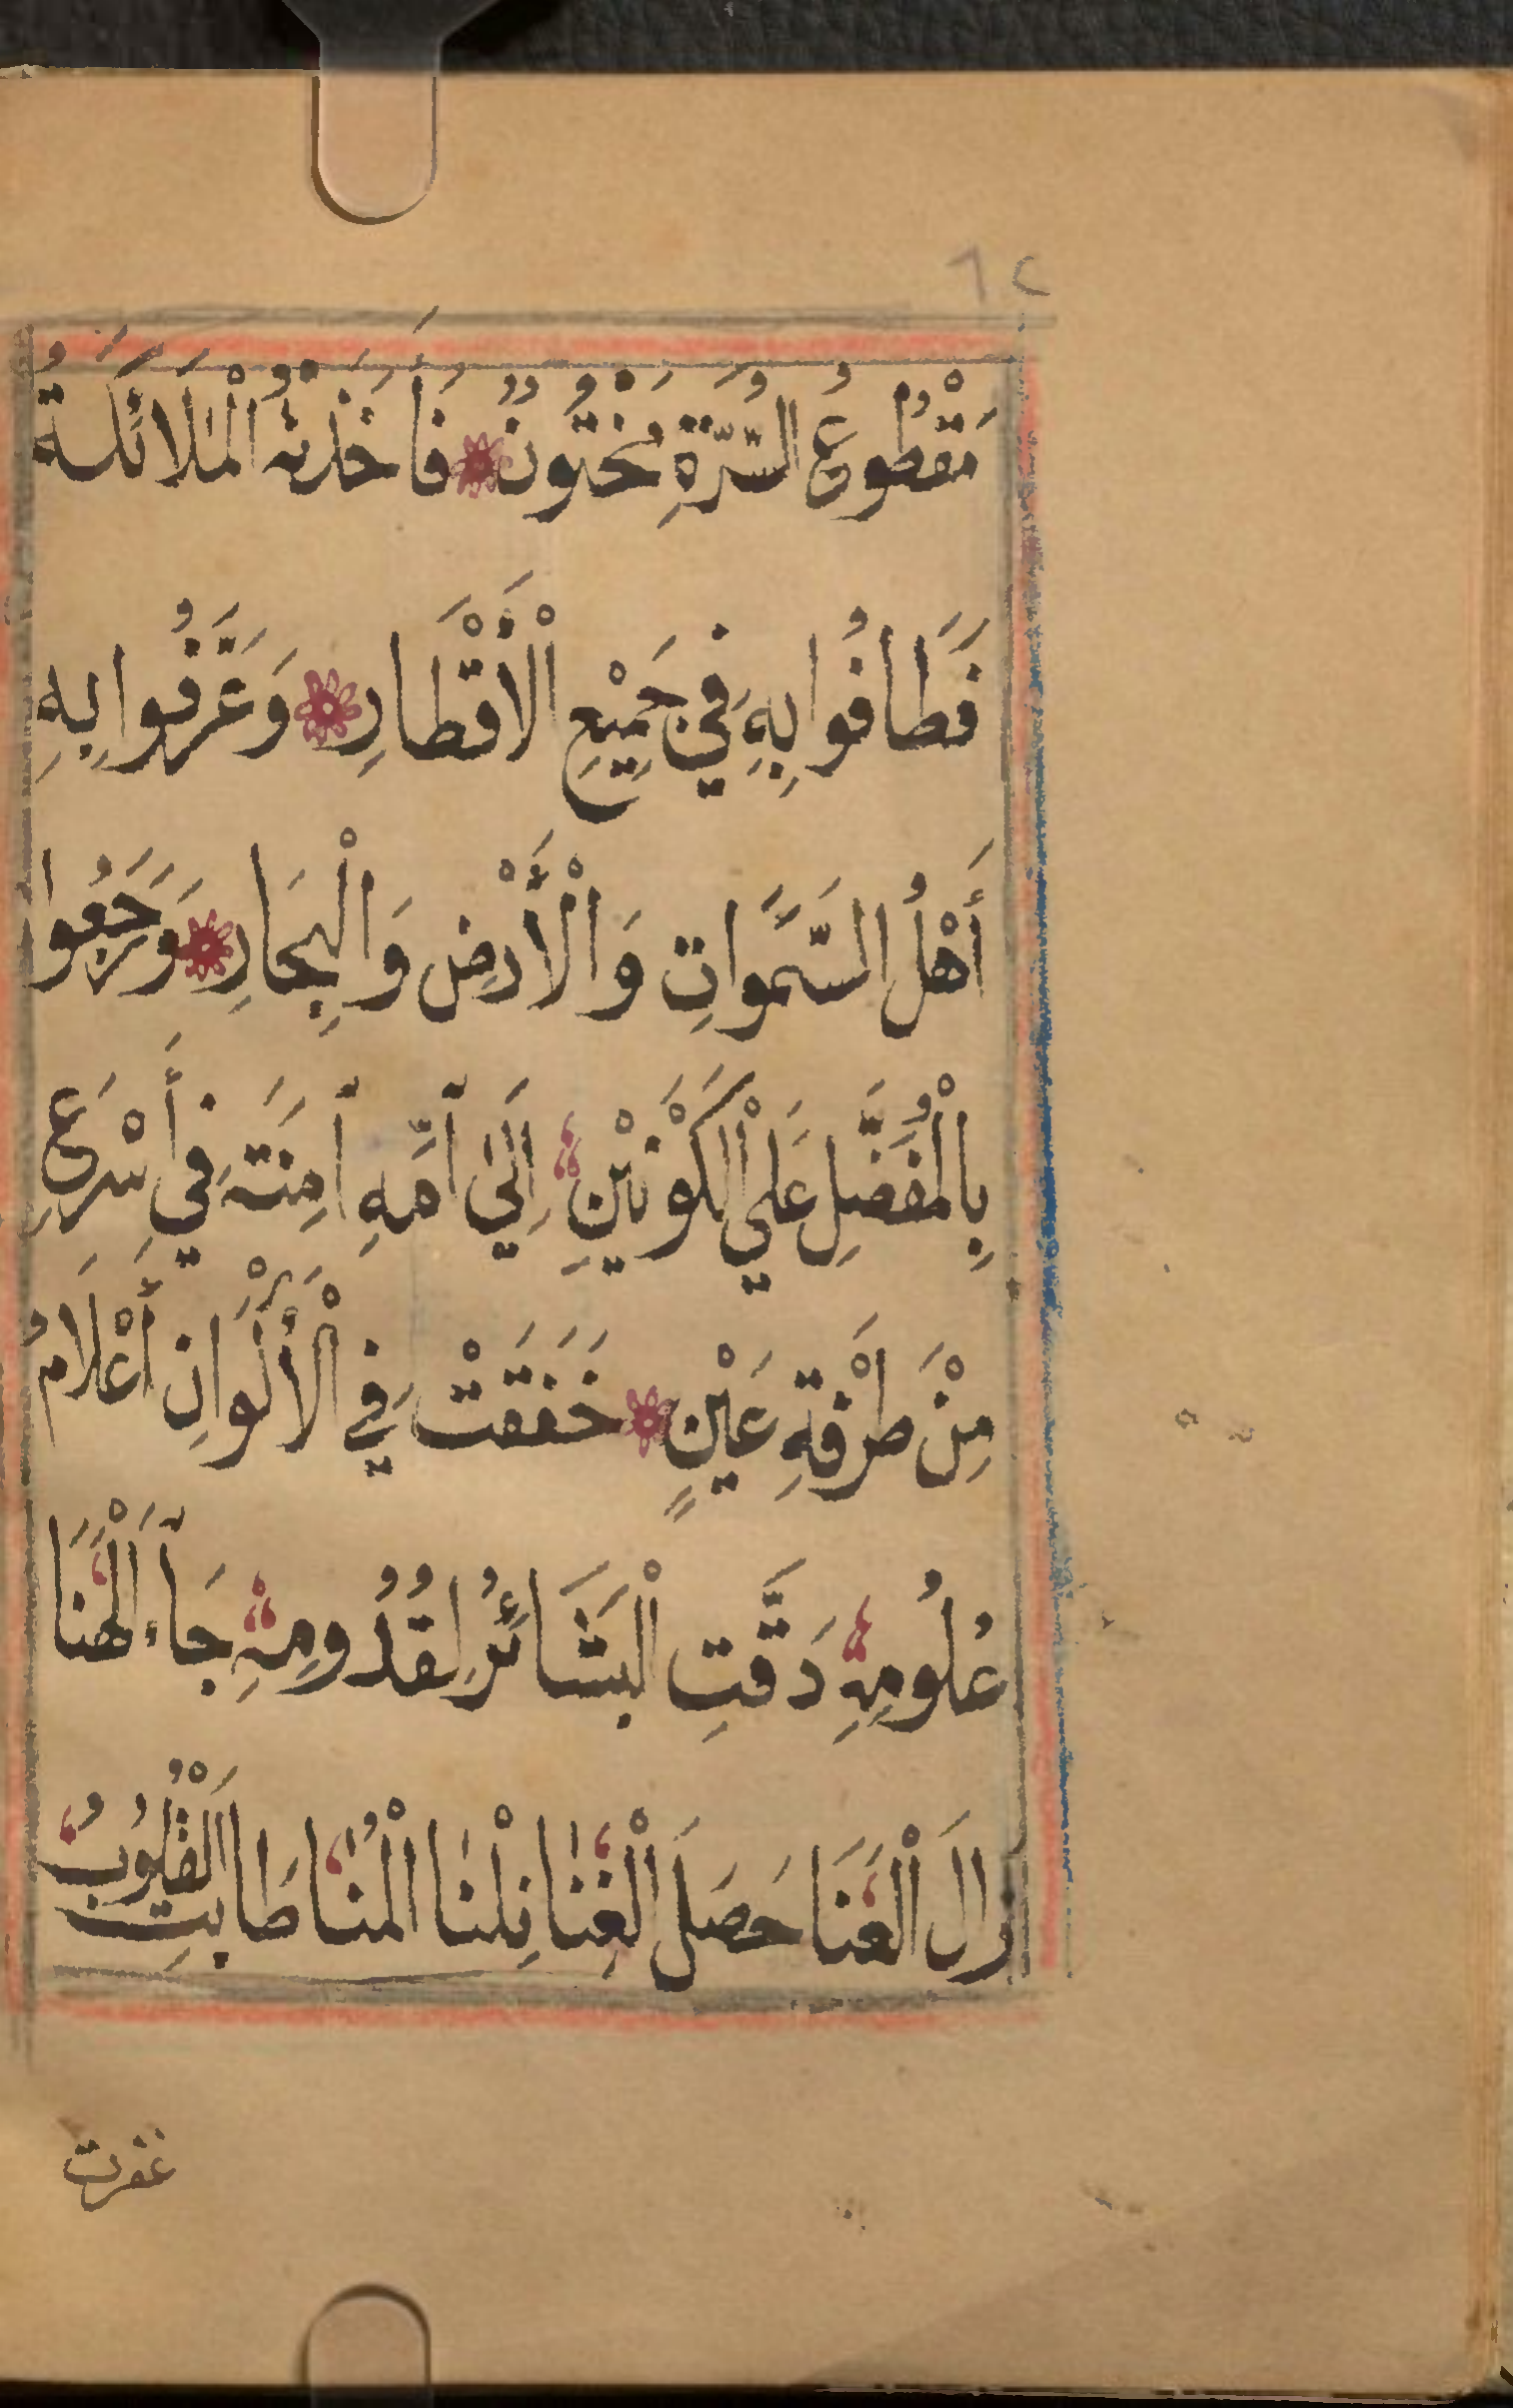 مَقْطُوعُ السُّرَّةِ مَخْتُونٌ فَأَخَذَتْهُ الْمَلَائَكَةُ
فَطَافُوا بِهِ فِي جَمِيْعِ الْأَقْطَارِ وَعَرَّفُوا بِهِ
أَهْلُ السَّمَوَاتِ وَالْأَرْضِ وَالْبِحَارِ وَرَجَعُوا
بِالْمُفَضَّلِ عَلَي الْكَوْنَيْنِ اِلَيٰ آُمِّهِ آمِنَةَ فِي أَسْرَعِ
مِنْ طَرْفَةِ عَيْنٍ خَفَقَتْ فِي الْأَلْوَانِ أَعْلَامُ
عُلُومِهِ دَقَّتِ الْبَشَائِرُ لِقُدُومِهِ جَآءَ الْهَنَا
زَالَ الْعَنَا حَصَلَ الْغِنَا نِلْنَا الْمُنَا طَابَتِ الْقُلُوبُ
غفرت